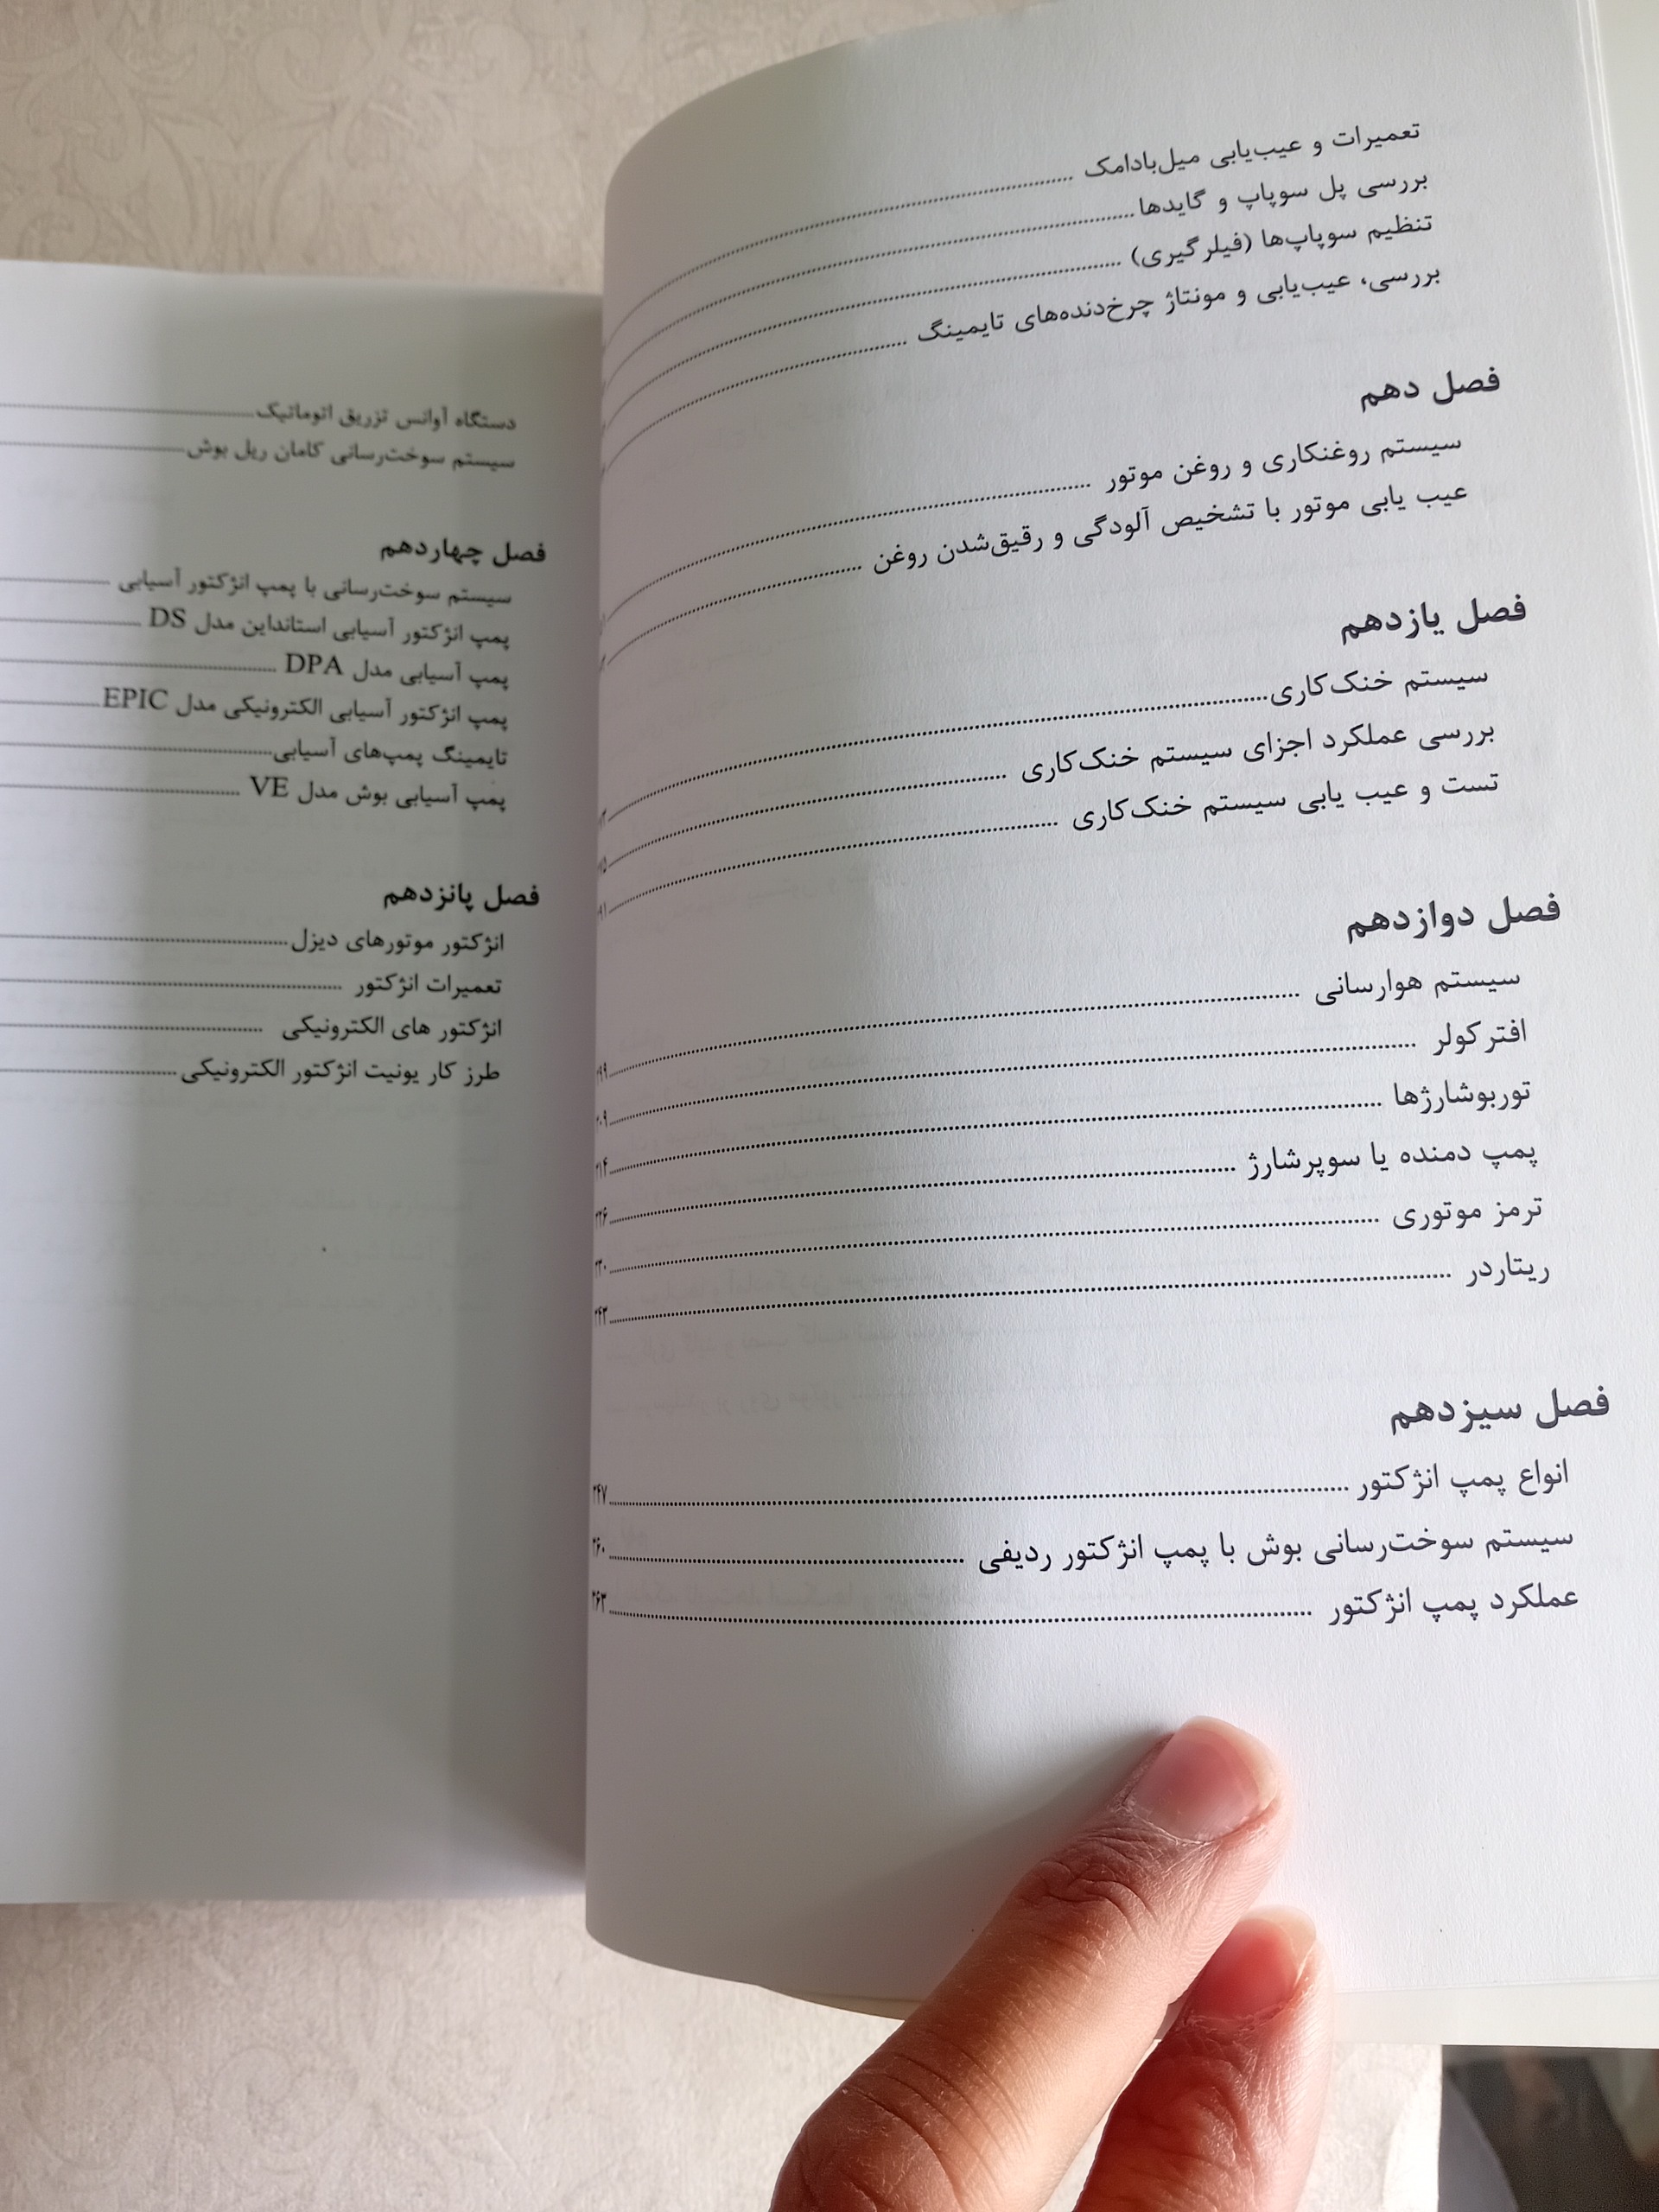 تعمیرات و عیب‌یابی میل‌بادامک
بررسی پل سوپاپ و گایدها
تنظیم سوپاپ‌ها (فیلرگیری)
بررسی، عیب‌یابی و مونتاژ چرخ‌دنده‌های تایمینگ
فصل دهم
سیستم روغنکاری و روغن موتور
عیب یابی موتور با تشخیص آلودگی و رقیق‌شدن روغن
فصل یازدهم
سیستم خنک‌کاری
بررسی عملکرد اجزای سیستم خنک‌کاری
تست و عیب یابی سیستم خنک‌کاری
فصل دوازدهم
سیستم هوارسانی
افترکولر
توربوشارژها
پمپ دمنده یا سوپرشارژ
ترمز موتوری
ریتاردر
فصل سیزدهم
انواع پمپ انژکتور
سیستم سوخت‌رسانی بوش با پمپ انژکتور ردیفی
عملکرد پمپ انژکتور
دستگاه آوانس تزریق اتوماتیک
سیستم سوخت‌رسانی کامان ریل بوش
فصل چهاردهم
سیستم سوخت‌رسانی با پمپ انژکتور آسیابی
پمپ انژکتور آسیابی استانداین مدل DS
پمپ آسیابی مدل DPA
پمپ انژکتور آسیابی الکترونیکی مدل EPIC
تایمینگ پمپ‌های آسیابی
پمپ آسیابی بوش مدل VE
فصل پانزدهم
انژکتور موتورهای دیزل
تعمیرات انژکتور
انژکتور های الکترونیکی
طرز کار یونیت انژکتور الکترونیکی